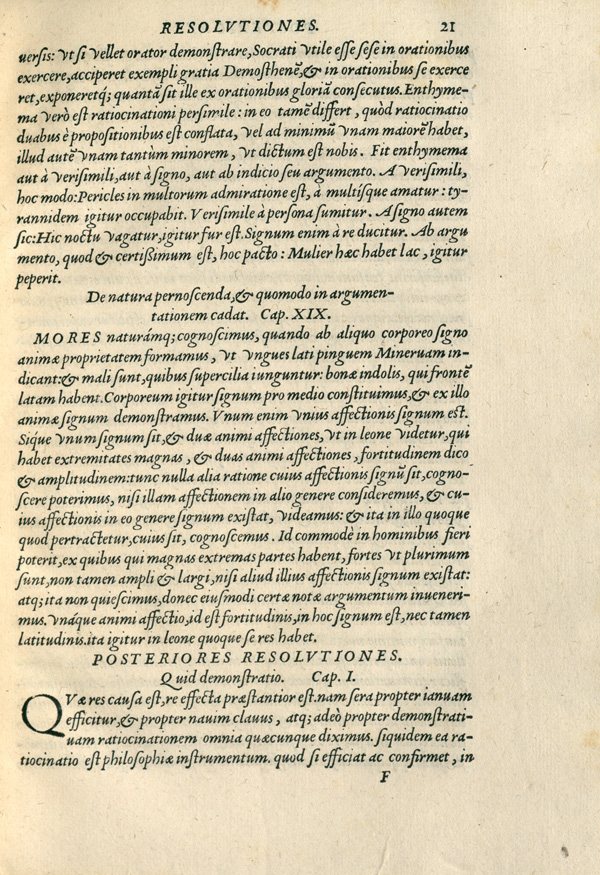 RESOLVTIONES. 21
uersis: vt si vellet orator demonstrare, Socrati vtile esse sese in orationibus
exercere, acciperet exempli gratia Demosthenē, & in orationibus se exerce
ret, exponeretq́; quantā sit ille ex orationibus gloriā consecutus. Enthyme-
ma verò est ratiocinationi persimile: in eo tamē differt, quòd ratiocinatio
duabus è propositionibus est conflata, vel ad minimū vnam maiorē habet,
illud autē vnam tantùm minorem, vt dictum est nobis. Fit enthymema
aut à verisimili, aut à signo, aut ab indicio seu argumento. A verisimili,
hoc modo: Pericles in multorum admiratione est, à multisque amatur: ty-
rannidem igitur occupabit. Verisimile à persona sumitur. A signo autem
sic: Hic noctu vagatur, igitur fur est. Signum enim à re ducitur. Ab argu
mento, quod & certissimum est, hoc pacto: Mulier hæc habet lac, igitur
peperit.
De natura pernoscenda, & quomodo in argumen-
tationem cadat. Cap. XIX.
MORES naturámq; cognoscimus, quando ab aliquo corporeo signo
animæ proprietatem formamus, vt vngues lati pinguem Mineruam in-
dicant: & mali sunt, quibus supercilia iunguntur: bonæ indolis, qui frontē
latam habent. Corporeum igitur signum pro medio constituimus, & ex illo
animæ signum demonstramus. Vnum enim vnius affectionis signum est.
Sique vnum signum sit, & duæ animi affectiones, vt in leone videtur, qui
habet extremitates magnas, & duas animi affectiones, fortitudinem dico
& amplitudinem: tunc nulla alia ratione cuius affectionis signū sit, cogno-
scere poterimus, nisi illam affectionem in alio genere consideremus, & cu-
ius affectionis in eo genere signum existat, videamus: & ita in illo quoque
quod pertractetur, cuius sit, cognoscemus. Id commodè in hominibus fieri
poterit, ex quibus qui magnas extremas partes habent, fortes vt plurimum
sunt, non tamen ampli & largi, nisi aliud illius affectionis signum existat:
atq; ita non quiescimus, donec eiusmodi certæ notæ argumentum inueneri-
mus. Vnáque animi affectio, id est fortitudinis, in hoc signum est, nec tamen
latitudinis. ita igitur in leone quoque se res habet.
POSTERIORES RESOLVTIONES.
Quid demonstratio. Cap. I.
QVæ res causa est, re effecta præstantior est. nam sera propter ianuam
efficitur, & propter nauim clauus, atq; adeò propter demonstrati-
uam ratiocinationem omnia quæcunque diximus. siquidem ea ra-
tiocinatio est philosophiæ instrumentum. quod si efficiat ac confirmet, in
F